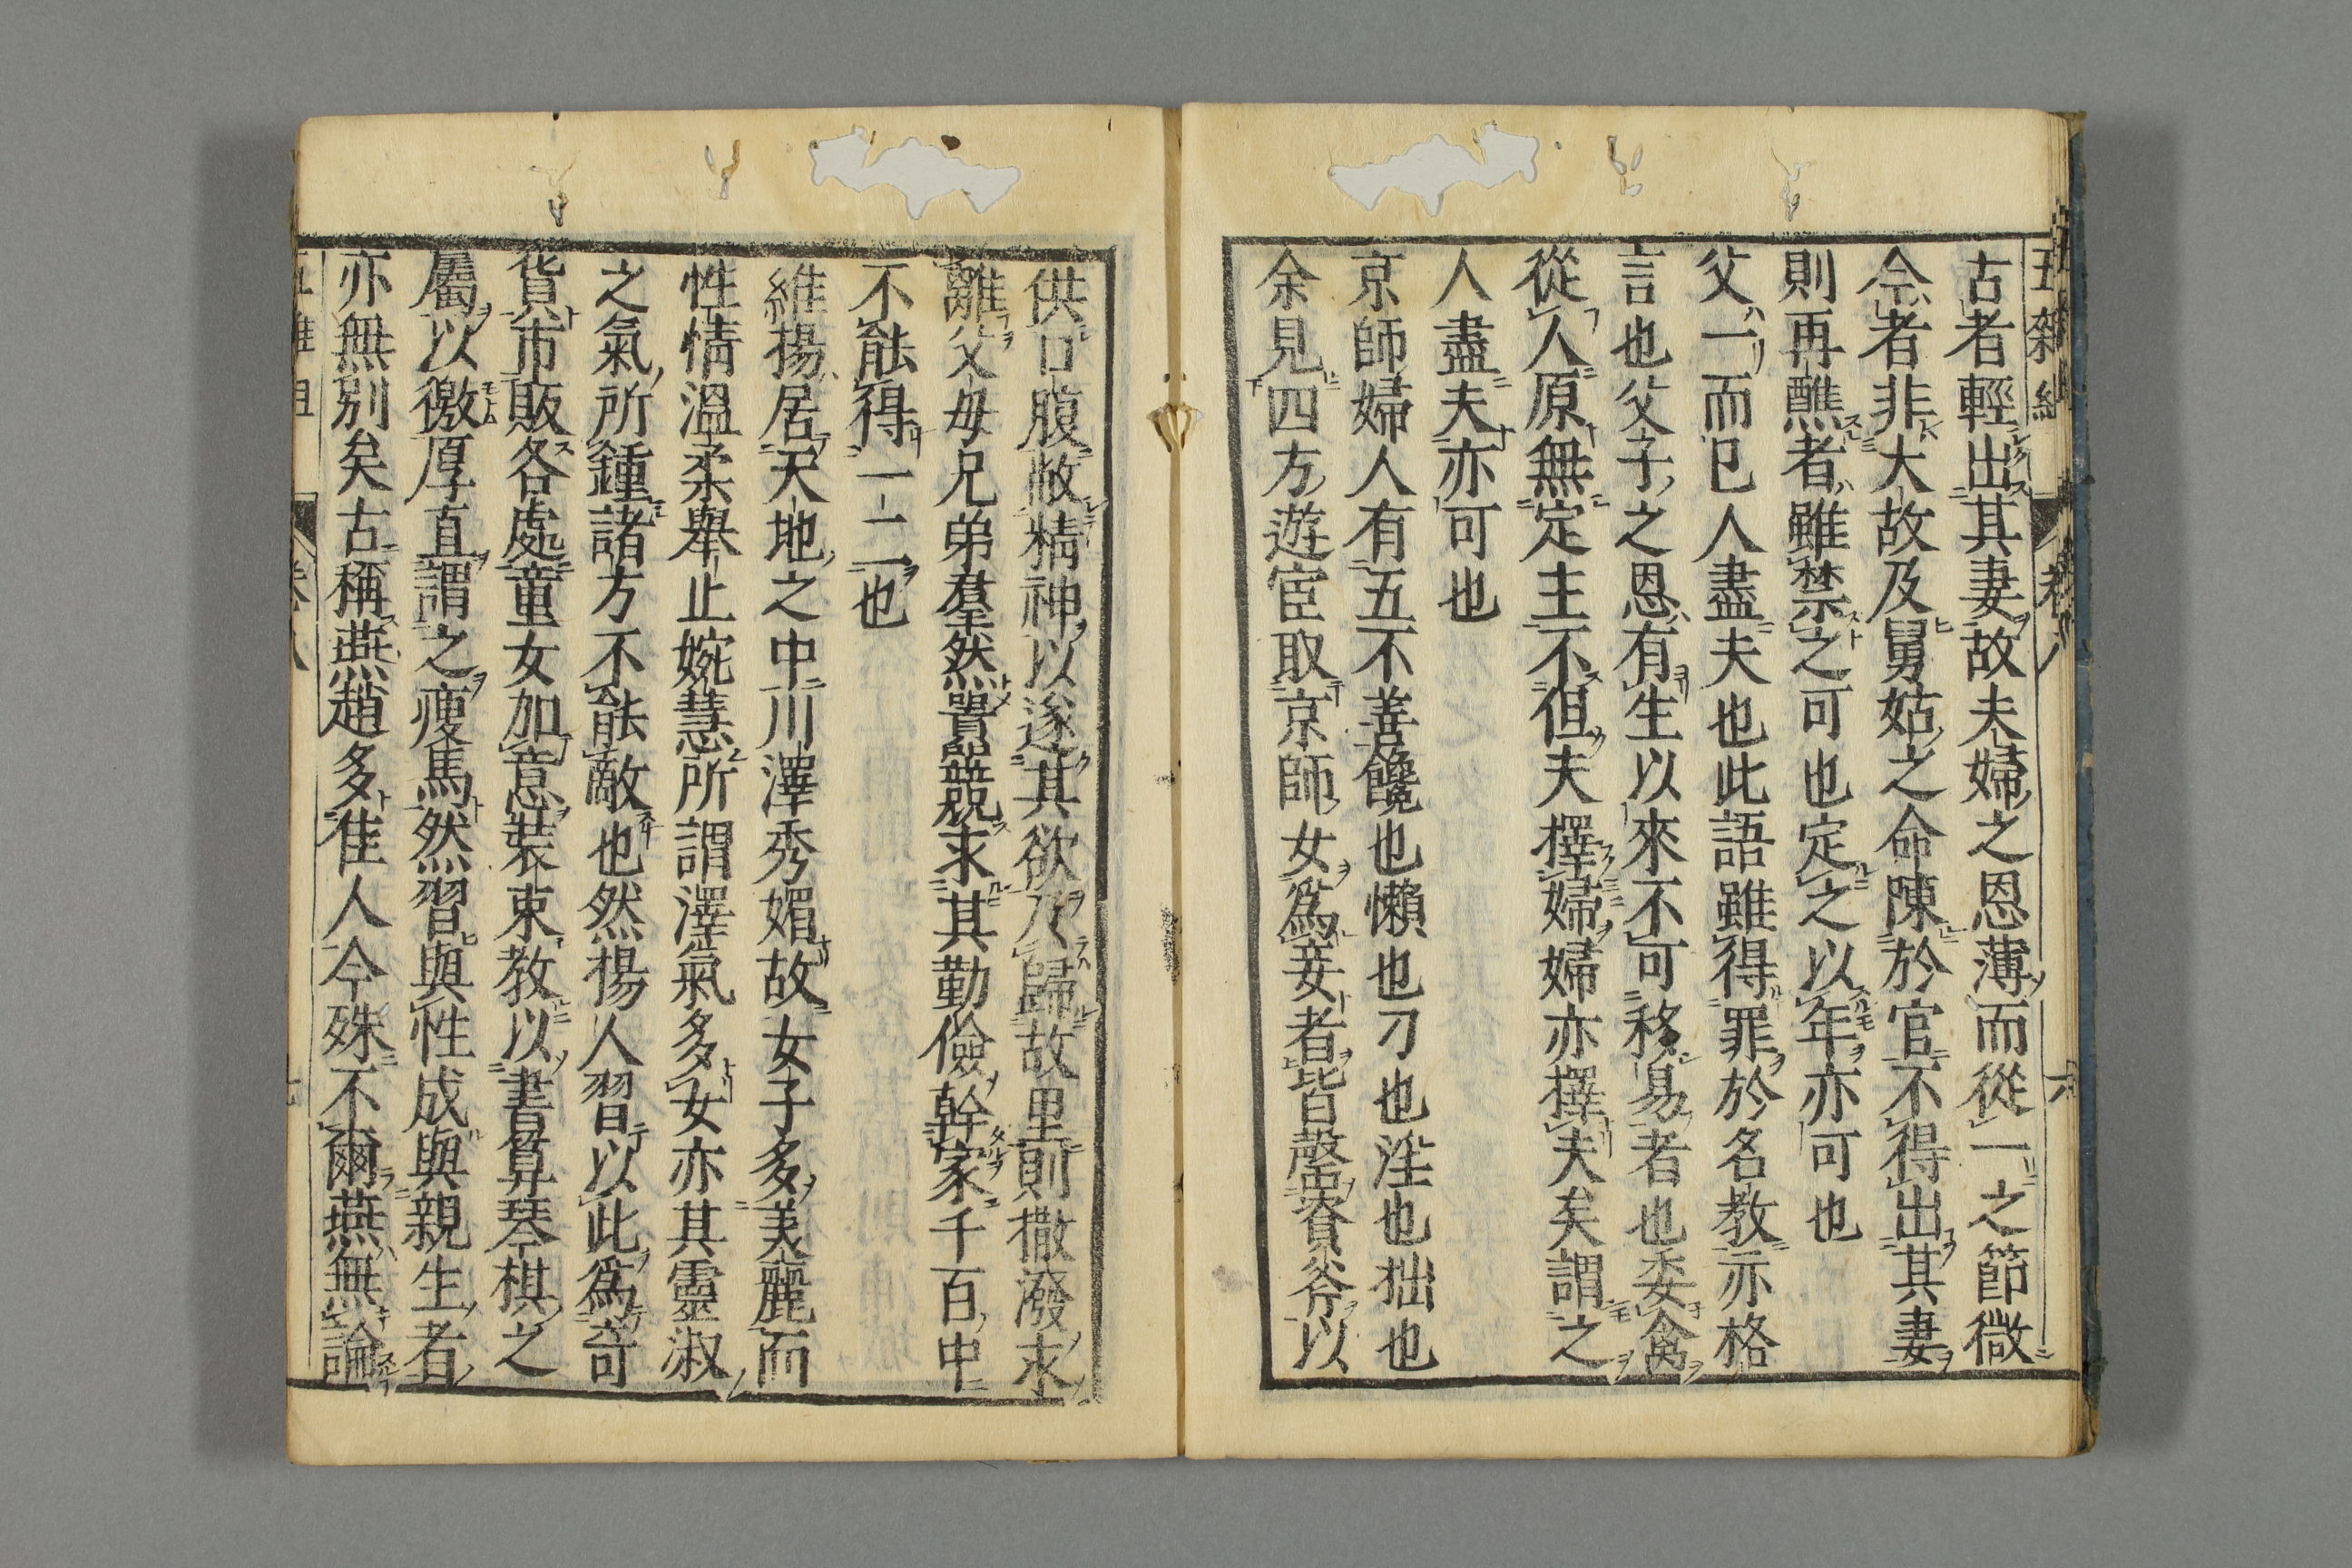 古者輕出其妻故夫婦之恩薄而從一之節微
今者非大故及舅姑之命陳於官不得出其妻
則再醮者雖禁之可也定之以年亦可也
父一而已人盡夫也此語雖得罪於名教亦格
言也父子之恩有生以來不可移易者也委禽
從人原無定主不但夫擇婦婦亦擇夫矣謂之
人盡夫亦可也
京師婦人有五不善饞也懶也刁也淫也拙也
余見四方遊宦取京師女爲妾者皆罄資斧以
供口腹敝精神以遂其欲及歸故里則撒潑求
離父母兄弟羣然囂競求其勤儉幹家千百中
不能得一二也
維揚居天地之中川澤秀媚故女子多美麗而
性情溫柔舉止婉慧所謂澤氣多女亦其靈淑
之氣所鍾諸方不能敵也然揚人習以此爲奇
貨市販各處童女加意裝束教以書算琴棋之
屬以徼厚直謂之瘦馬然習與性成與親生者
亦無別矣古稱燕趙多佳人今殊不爾燕無論